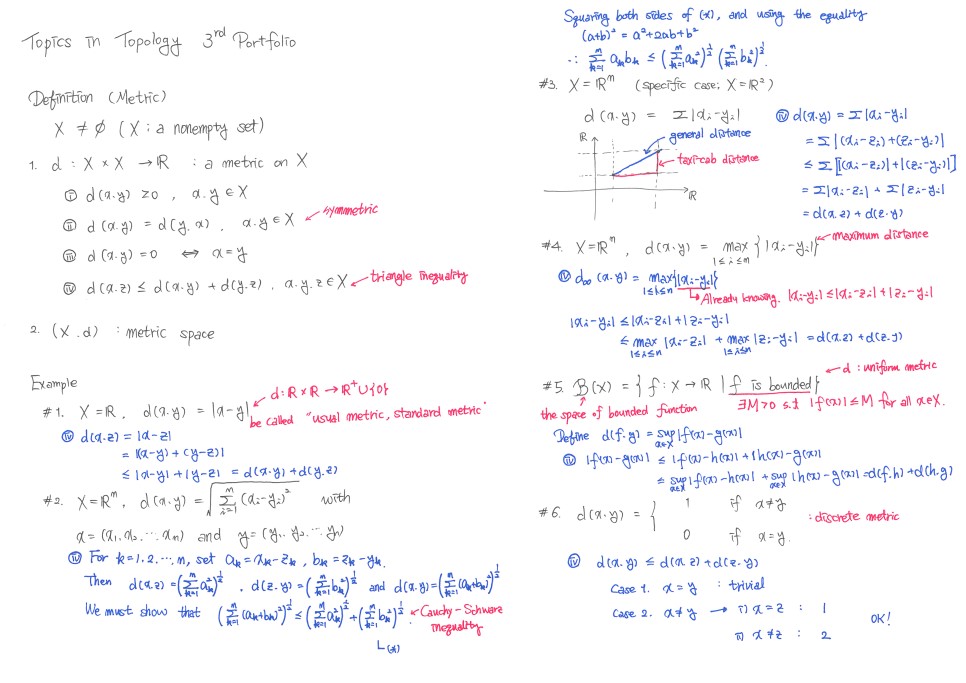 Topics in Topology 3rd Portfolio
Definition (Metric)
X ≠ ∅ (X : a nonempty set)
1. d : X × X → ℝ : a metric on X
ⓘ d(x.y) ≥ 0 , x.y ∈ X
ⓘⓘ d(x.y) = d(y.x) , x.y ∈ X ← symmetric
ⓘⓘⓘ d(x.y) = 0 ⇔ x = y
ⓘⓥ d(x.z) ≤ d(x.y) + d(y.z) , x.y.z ∈ X ← triangle inequality
2. (X.d) : metric space
Example
#1. X = ℝ , d(x.y) = |x-y| ← d : ℝ × ℝ → ℝ⁺∪{0}
be called "usual metric, standard metric"
ⓘⓥ d(x.z) = |x-z|
= |(x-y) + (y-z)|
≤ |x-y| + |y-z| = d(x.y) + d(y.z)
#2. X = ℝⁿ , d(x.y) = √(Σ_{i=1}^{n} (xᵢ-yᵢ)²) with
x = (x₁, x₂, ⋯, xₙ) and y = (y₁, y₂, ⋯, yₙ)
ⓘⓥ For k = 1, 2, ⋯, n, set aₖ = xₖ - zₖ , bₖ = zₖ - yₖ.
Then d(x.z) = (Σ_{k=1}^{n} aₖ²)^{1/2} , d(z.y) = (Σ_{k=1}^{n} bₖ²)^{1/2} and d(x.y) = (Σ_{k=1}^{n} (aₖ+bₖ)²)^{1/2}
We must show that (Σ_{k=1}^{n} (aₖ+bₖ)²)^{1/2} ≤ (Σ_{k=1}^{n} aₖ²)^{1/2} + (Σ_{k=1}^{n} bₖ²)^{1/2}. ← Cauchy - Schwarz inequality
(*)
Squaring both sides of (*), and using the equality
(a+b)² = a²+2ab+b²
∴ Σ_{k=1}^{n} aₖbₖ ≤ (Σ_{k=1}^{n} aₖ²)^{1/2} (Σ_{k=1}^{n} bₖ²)^{1/2}.
#3. X = ℝⁿ (specific case; X = ℝ²)
d(x.y) = Σ|xᵢ-yᵢ|
ℝ
general distance
taxi-cab distance
ℝ
ⓘⓥ d(x.y) = Σ|xᵢ-yᵢ|
= Σ|(xᵢ-zᵢ)+(zᵢ-yᵢ)|
≤ Σ[|(xᵢ-zᵢ)|+|(zᵢ-yᵢ)|]
= Σ|xᵢ-zᵢ| + Σ|zᵢ-yᵢ|
= d(x.z) + d(z.y)
#4. X = ℝⁿ , d(x.y) = max_{1≤i≤n} {|xᵢ-yᵢ|} ← maximum distance
ⓘⓥ d∞(x.y) = max_{1≤k≤n} {|xᵢ-yᵢ|}
↳ Already knowing. |xᵢ-yᵢ| ≤ |xᵢ-zᵢ| + |zᵢ-yᵢ|
|xᵢ-yᵢ| ≤ |xᵢ-zᵢ| + |zᵢ-yᵢ|
≤ max_{1≤i≤n} |xᵢ-zᵢ| + max_{1≤i≤n} |zᵢ-yᵢ| = d(x.z) + d(z.y)
#5. B(X) = {f : X → ℝ | f is bounded} ← d : uniform metric
the space of bounded function
∃M>0 s.t |f(x)| ≤ M for all x∈X.
Define d(f.g) = sup_{x∈X} |f(x)-g(x)|
ⓘⓥ |f(x)-g(x)| ≤ |f(x)-h(x)| + |h(x)-g(x)|
≤ sup_{x∈X} |f(x)-h(x)| + sup_{x∈X} |h(x)-g(x)| = d(f.h) + d(h.g)
#6. d(x.y) = { 1 if x≠y
0 if x=y.
: discrete metric
ⓘⓥ d(x.y) ≤ d(x.z) + d(z.y)
Case 1. x = y : trivial
Case 2. x ≠ y → i) x = z : 1
ii) x ≠ z : 2
OK!